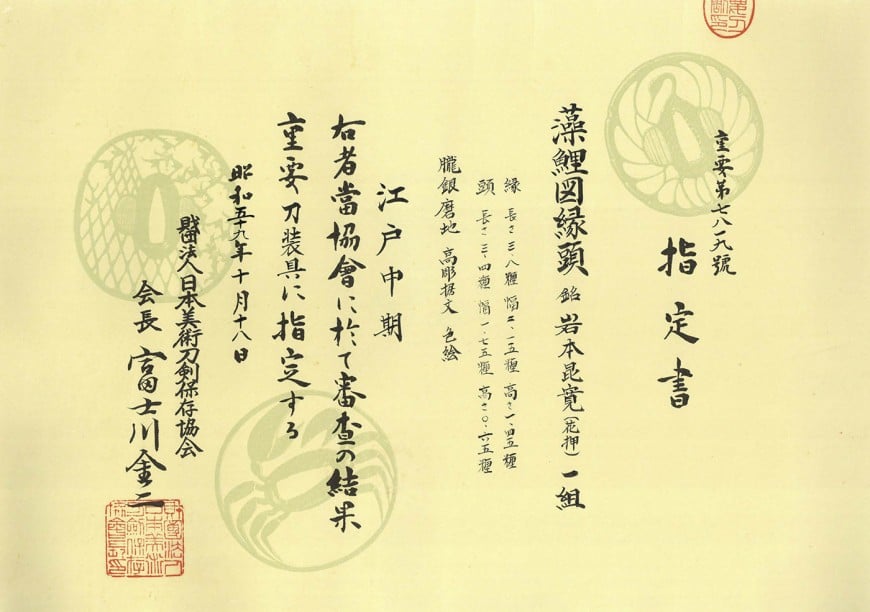 重要第七八一九號
指定書
藻鯉図縁頭 銘 岩本昆寛(花押) 一組
縁 長さ三・八糎 幅二・一五糎 高さ一・四五糎
頭 長さ三・四糎 幅一・七五糎 高さ〇・六五糎
朧銀磨地 高彫据文 色絵
江戸中期
右者當協會に於て審査の結果
重要刀装具に指定する
昭和五十九年十月十八日
財団法人日本美術刀剣保存協会
会長 富士川金二